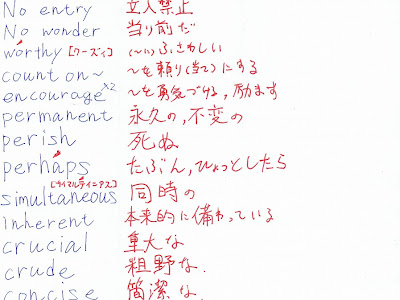 No entry 立入禁止
No wonder 当り前だ
worthy [ワーズィ] (~に)ふさわしい
count on~ ~を頼り(当て)にする
encourage x2 ~を勇気づける, 励ます
permanent 永久の, 不変の
perish 死ぬ
perhaps たぶん, ひょっとしたら
[サイマルテイニアス]
simultaneous 同時の
inherent 本来的に備わっている
crucial 重大な
crude 粗野な.
concise 簡潔な.